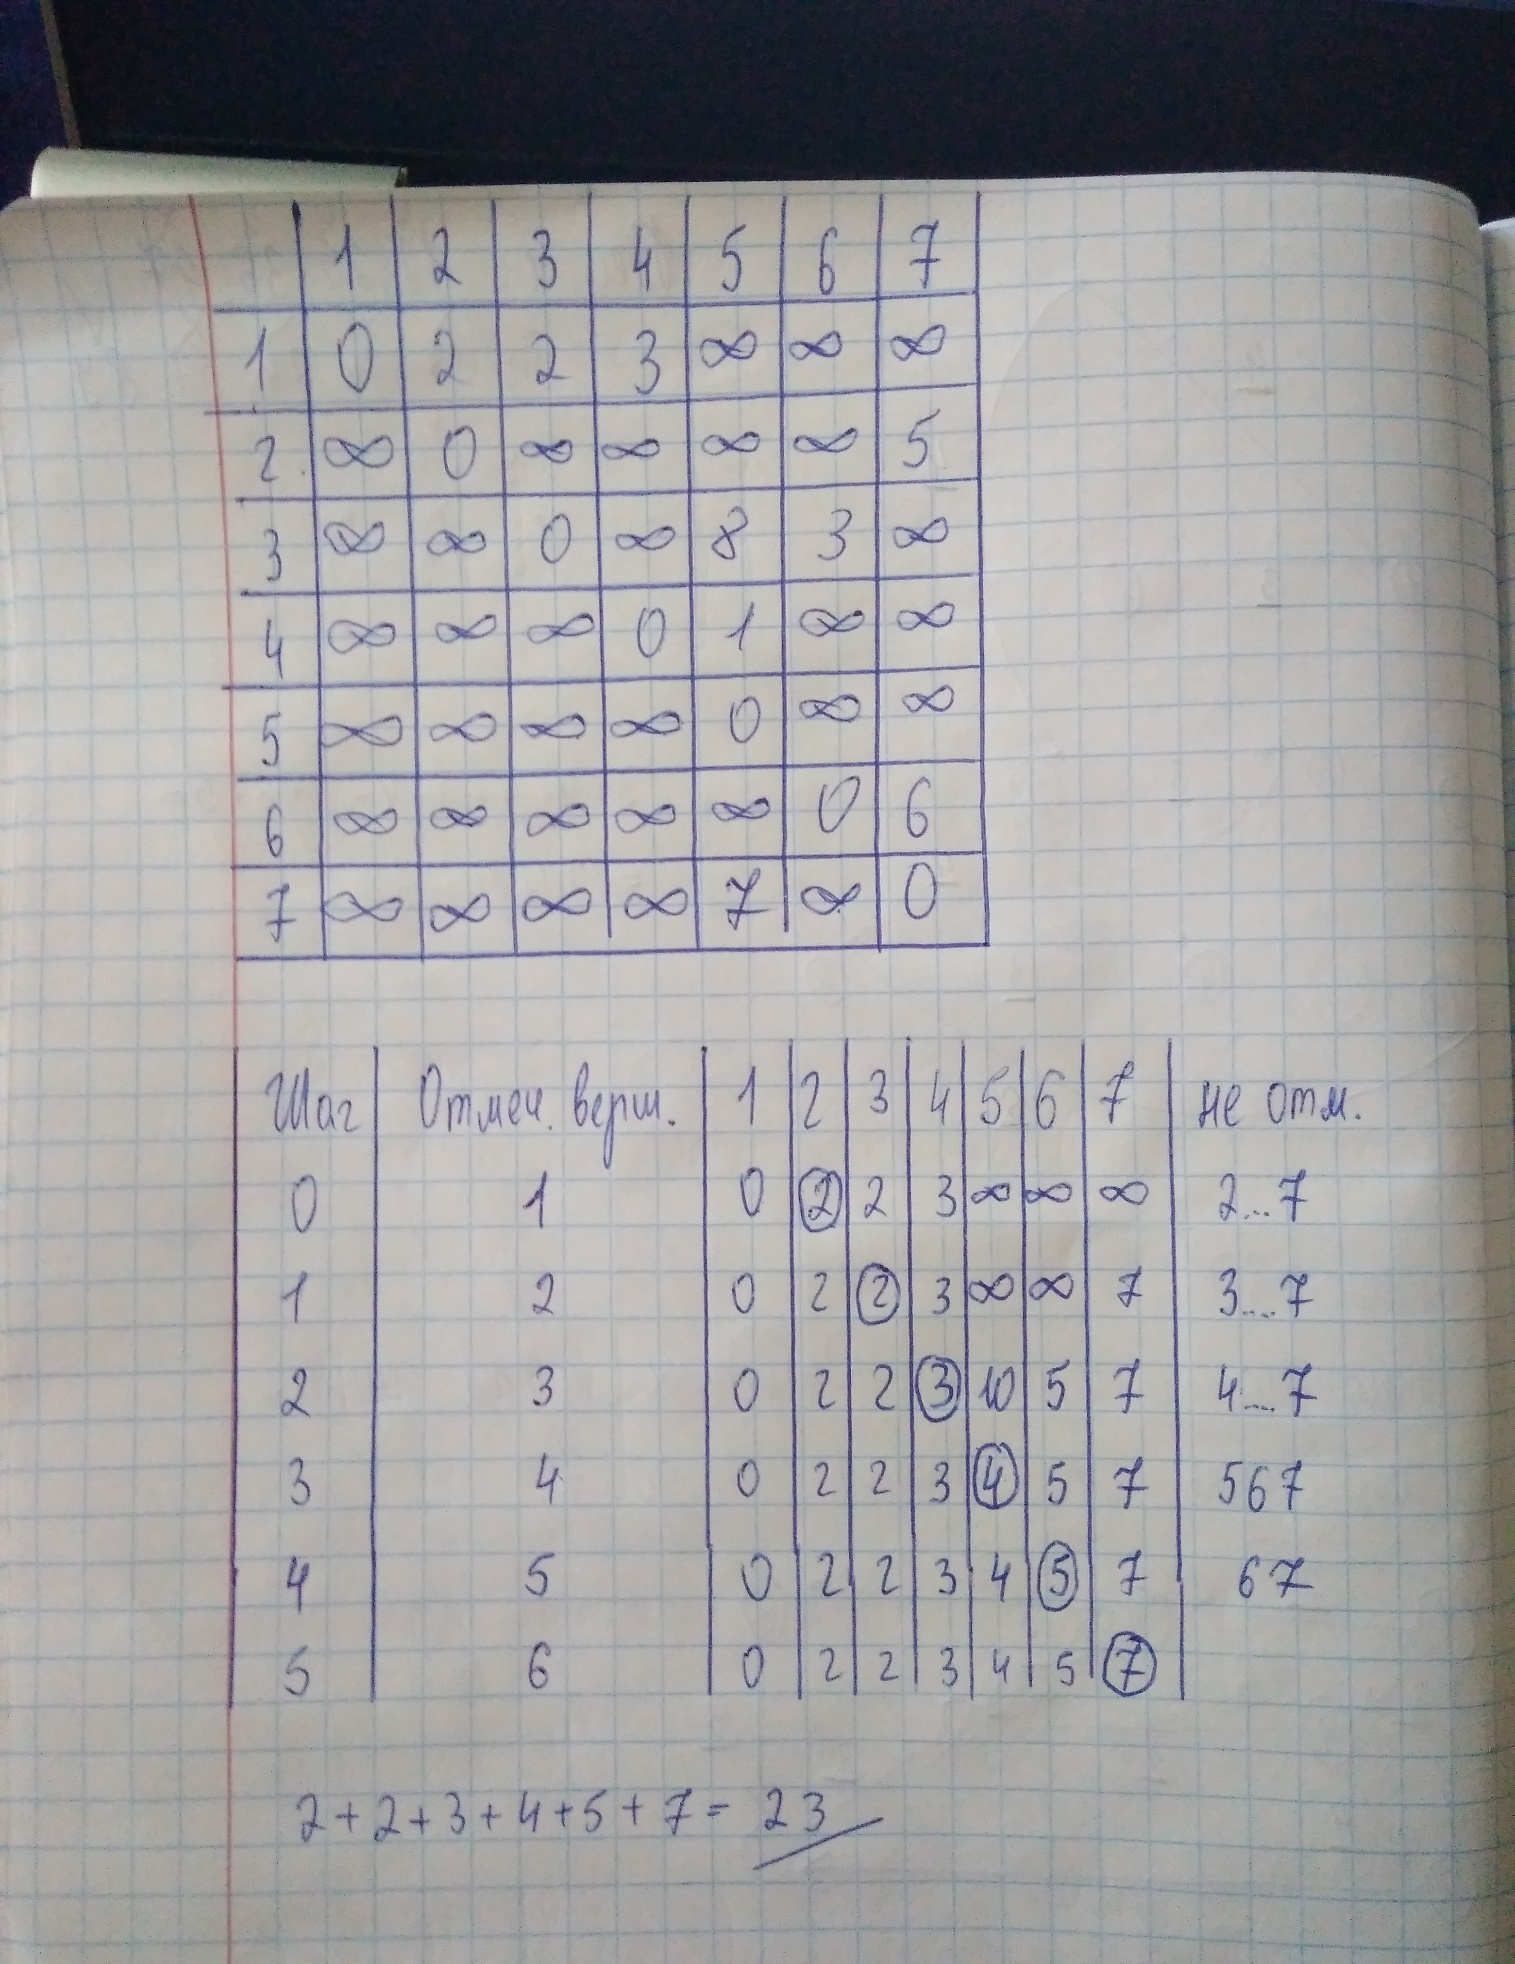 1 2 3 4 5 6 7
1 0 2 2 3 ∞ ∞ ∞
2. ∞ 0 ∞ ∞ ∞ ∞ 5
3 ∞ ∞ 0 ∞ 8 3 ∞
4 ∞ ∞ ∞ 0 1 ∞ ∞
5 ∞ ∞ ∞ ∞ 0 ∞ ∞
6 ∞ ∞ ∞ ∞ ∞ 0 6
7 ∞ ∞ ∞ ∞ 7 ∞ 0
Шаг Отмеч. верш. 1 2 3 4 5 6 7 не отм.
0 1 0 2 2 3 ∞ ∞ ∞ 2...7
1 2 0 2 2 3 ∞ ∞ 7 3...7
2 3 0 2 2 3 10 5 7 4...7
3 4 0 2 2 3 4 5 7 567
4 5 0 2 2 3 4 5 7 67
5 6 0 2 2 3 4 5 7
2+2+3+4+5+7= 23